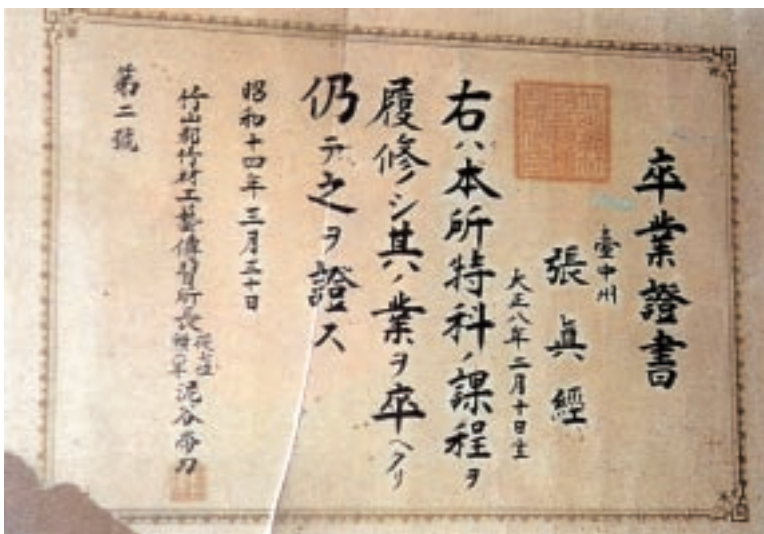 卒業證書
臺中州
張眞經
大正八年二月十日生
右ハ本所特科ノ課程ヲ
履修シ其ノ業ヲ卒ヘタリ
仍テ之ヲ證ス
昭和十四年三月三十日
竹山郡竹材工藝傳習所長
第二號